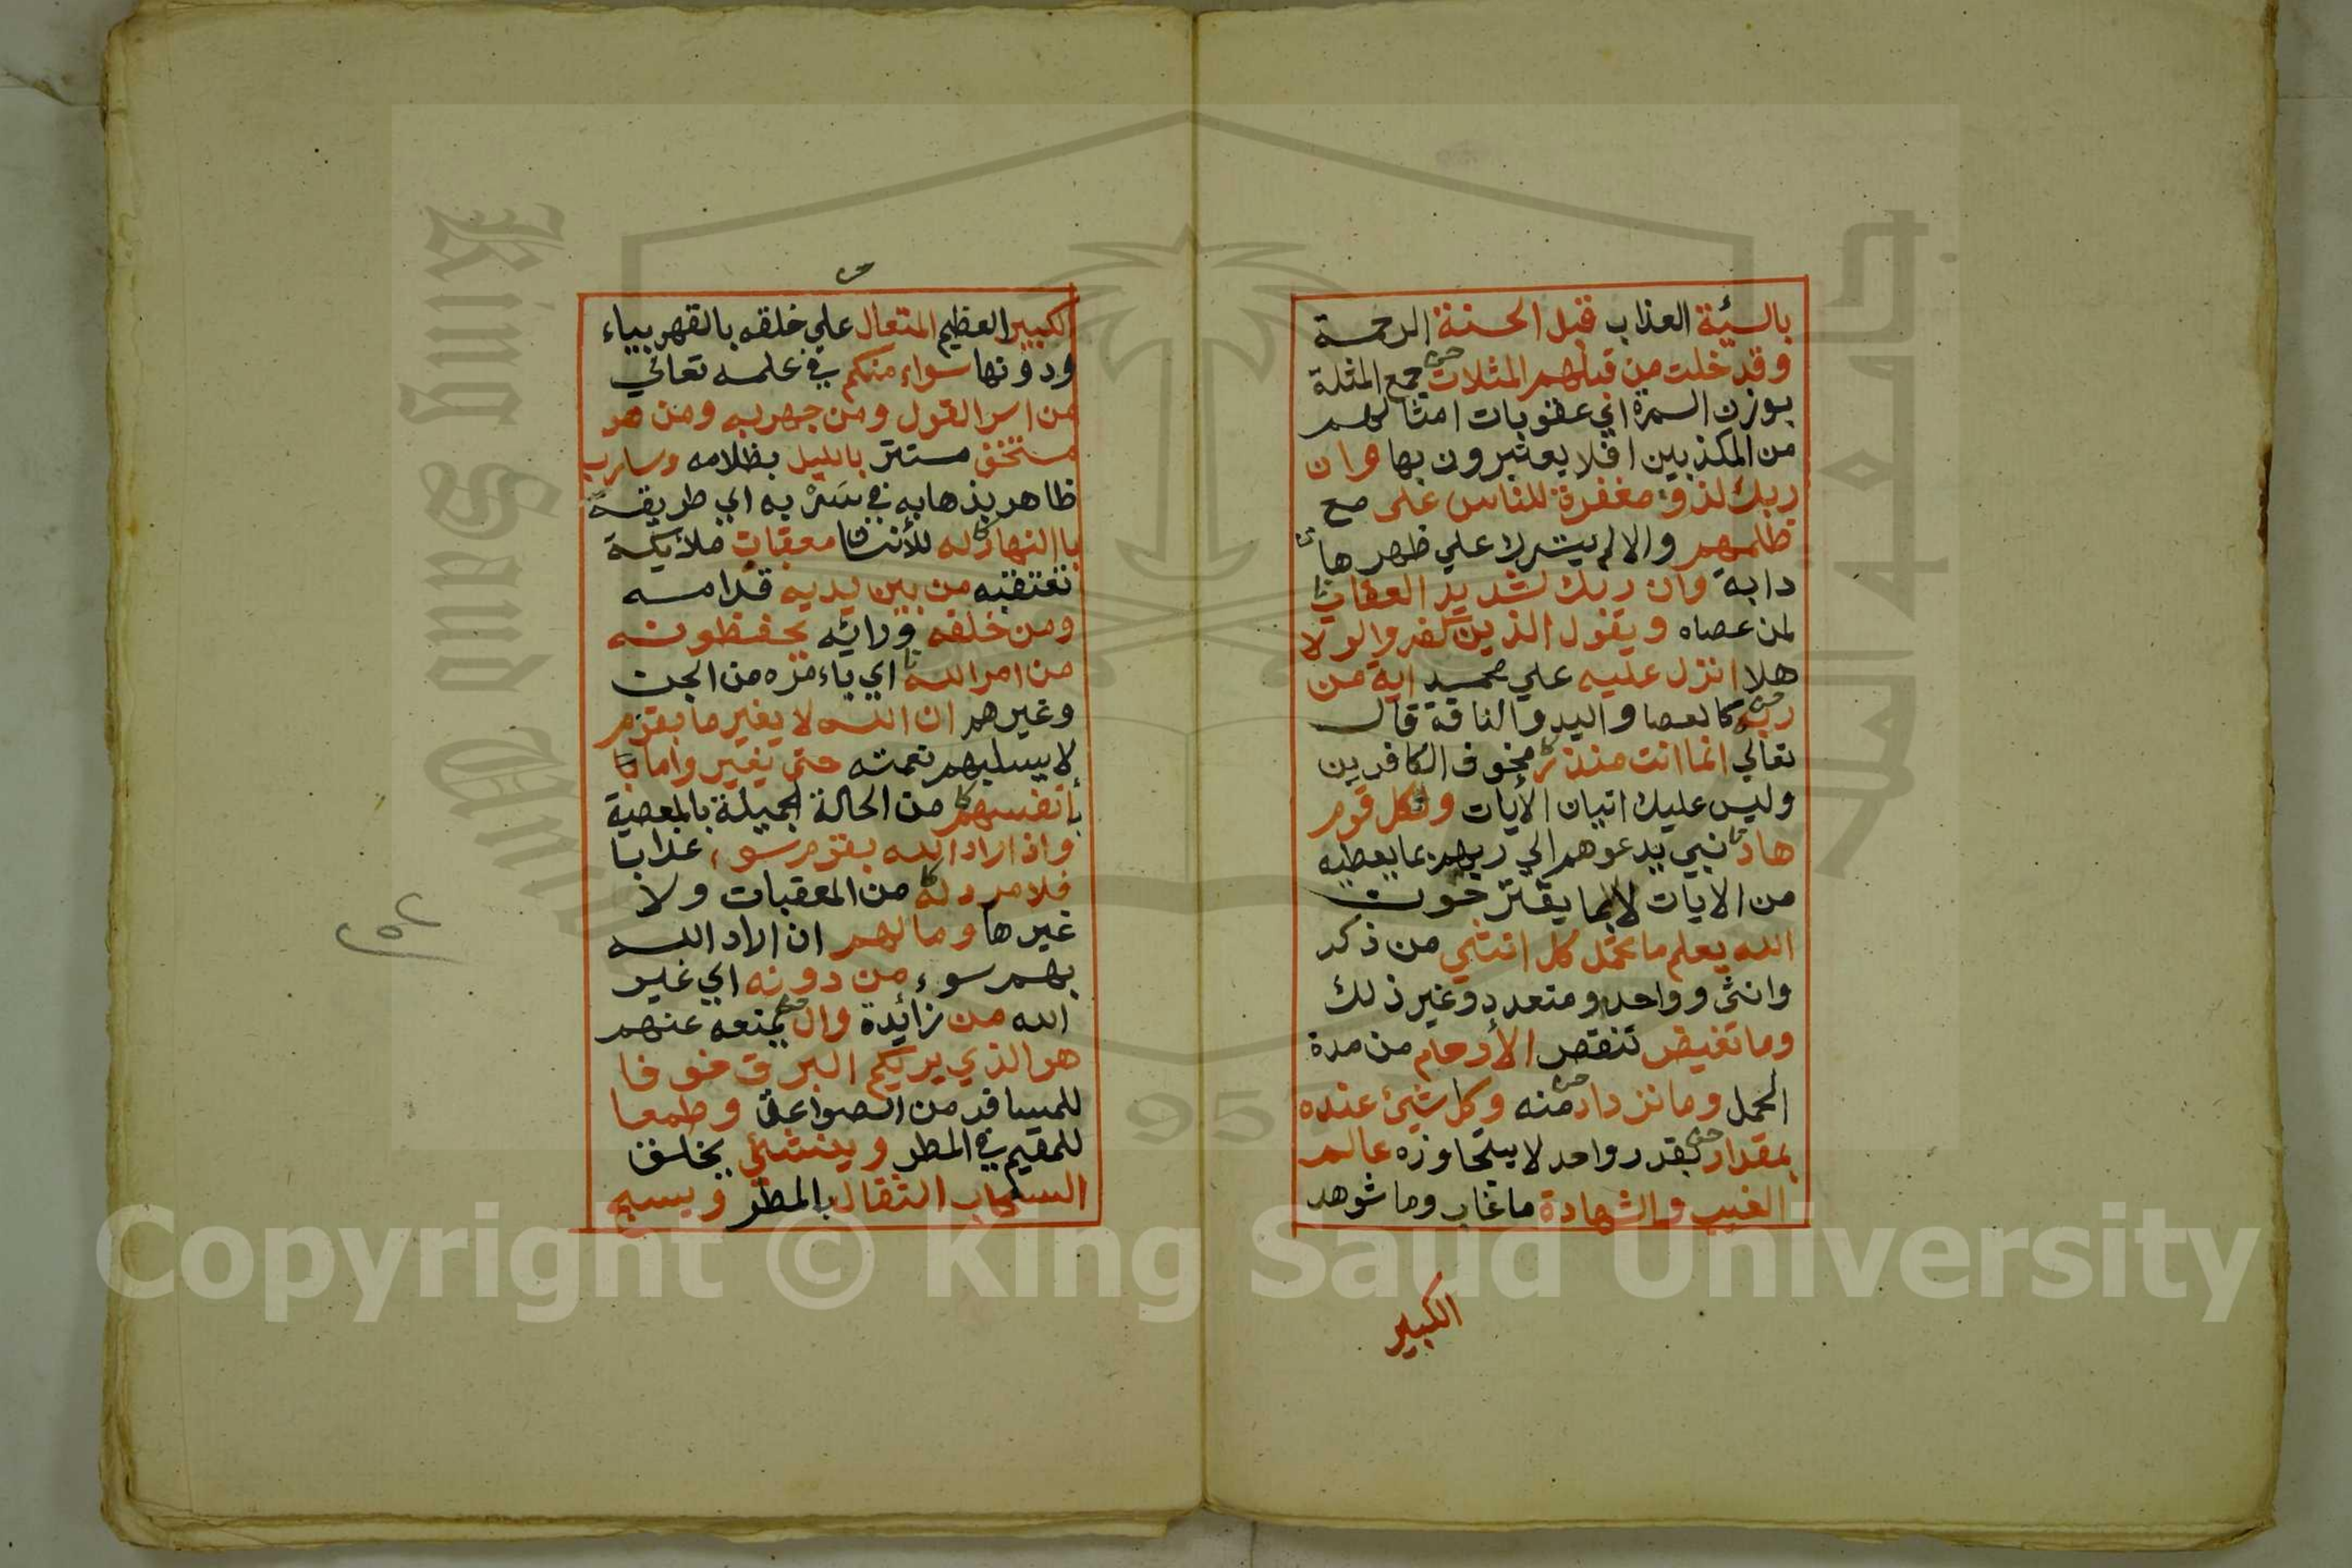 بالسئة العذاب قبل الحسنة الرحمة
وقد خلت من قبلهم المثلات جمع المثلة
بوزن السمرة اي عقوبات امثالهم
من المكذبين افلا يعتبرون بها وان
ربك لذو مغفرة للناس على مع
ظلمهم والا لم يترك علي ظهرها
دابة وان ربك لشديد العقاب
لمن عصاه ويقول الذين كفروا لولا
هلا انزل عليه علي محمد اية من
ربه كالعصا واليد والناقة قال
تعالي انما انت منذر مخوف الكافرين
وليس عليك اتيان الأيات ولكل قوم
هاد نبي يدعوهم الي ربهم بما يعطيه
من الايات لا بما يقترحون
الله يعلم ما تحمل كل انثي من ذكر
وانثى وواحد ومتعدد وغير ذلك
وما تغيض تنقص الأرحام من مدة
الحمل وما تزداد منه وكل شئ عنده
بمقدار بقدر واحد لا يتجاوزه عالم
الغيب والشهادة ما غاب وما شوهد
الكبير
الكبير العظيم المتعال علي خلقه بالقهر بياء
ودونها سواء منكم في علمه تعالي
من اسر القول ومن جهر به ومن هو
مستخف مستتر بالليل بظلامه وسارب
ظاهر بذهابه في سَرْبه اي طريقة
باالنهار له للأنسا معقبات ملائيكة
تعتقبه من بين يديه قدامه
ومن خلفه ورائه يحفظونه
من امر الله اي باءمره من الجن
وغيرهم ان الله لا يغير ما بقوم
لا يسلبهم نعمته حتى يغيروا ما
بأنفسهم من الحالة الجميلة بالمعصية
واذا اراد الله بقوم سوء عذابا
فلا مرد له من المعقبات ولا
غيرها وما لهم ان اراد الله
بهم سوء من دونه اي غير
الله من زائدة وال يمنعه عنهم
هو الذي يريكم البرق خوفا
للمسافر من الصواعق وطمعا
للمقيم في المطر وينشئ يخلق
السحاب الثقال بالمطر ويسبح
King Saud University
جامعة الملك
1957
Copyright © King Saud University